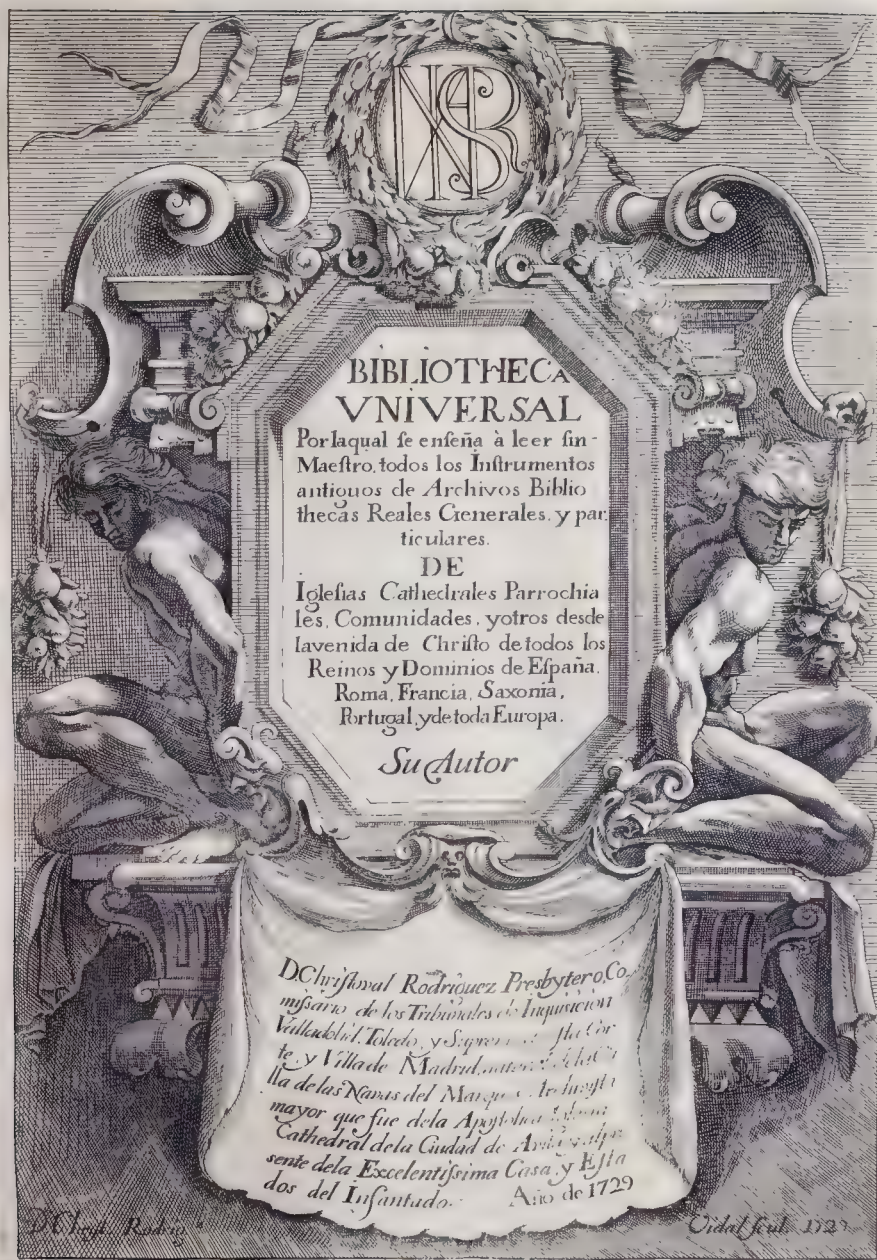 BIBLIOTHECA
VNIVERSAL
Por laqual ſe enſeña à leer ſin-
Maeſtro, todos los Inſtrumentos
antiguos de Archivos Biblio
thecas Reales Generales, y par
ticulares.
DE
Igleſias Cathedrales Parrochia
les, Comunidades, yotros desde
lavenida de Chriſto detodos los
Reinos y Dominios de Eſpaña,
Roma, Francia, Saxonia,
Portugal, ydetoda Europa.
Su Autor
D. Chriſtoval Rodriguez Presbytero, Co
miſsario de los Tribunales de Inquiſicion
Valladolid, Toledo, y
te, y Villa de Madrid,
lla de las Navas del
mayor que fue dela
Cathedral dela Ciudad de
sente dela Excelentiſsima Caſa, y Eſta
dos del Infantado. Año de 1729
Rodrig
Vidal ſcul.